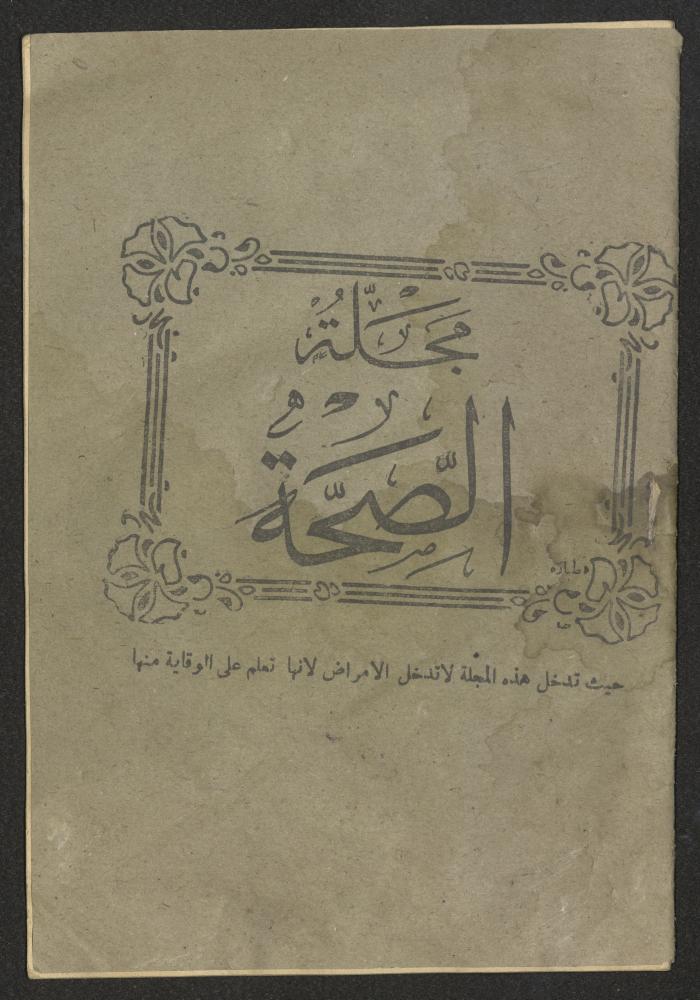 مَجَلَّةُ
الصِّحَّة
حيث تدخل هذه المجلة لاتدخل الامراض لانها تعلم على الوقاية منها